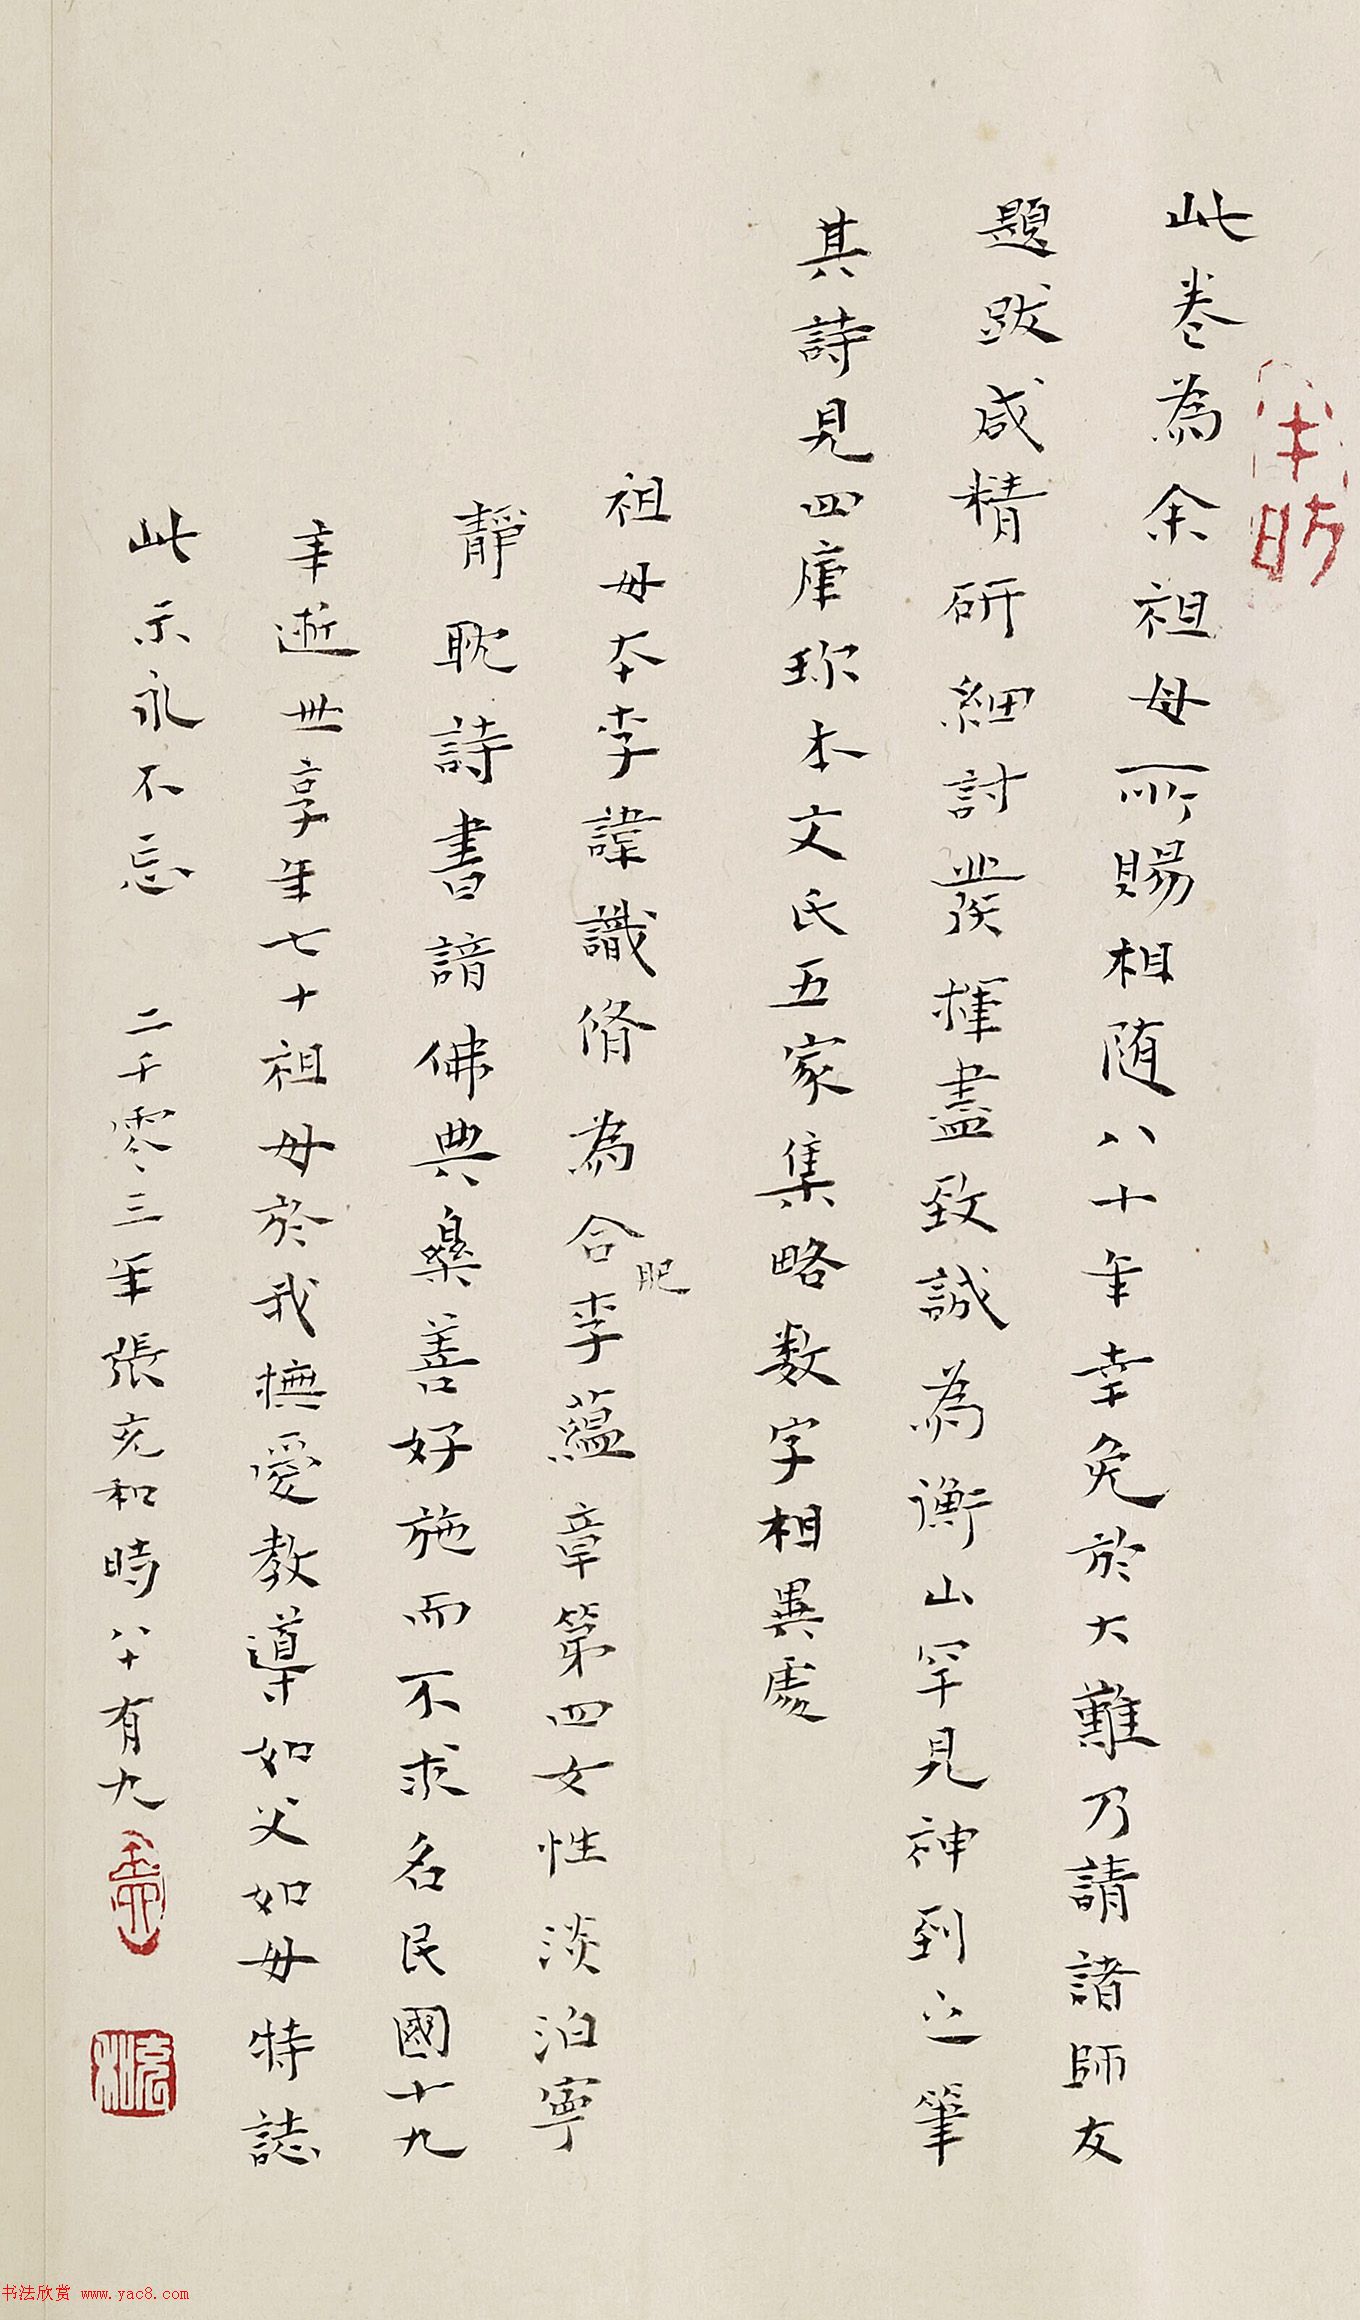 此卷為余祖母所賜相随八十年幸免於大難乃請諸師友
題跋咸精研細討發揮盡致誠為衡山罕見神到之筆
其詩見四庫珍本文氏五家集略数字相異處
祖母本李諱識脩為合肥李蘊章第四女性淡泊寧
靜耽詩書諳佛典樂善好施而不求名民國十九
年逝世享年七十祖母於我撫愛教導如父如母特誌
此示永不忘 二千零三年張充和時八十有九
充和
书法欣赏 www.yac8.com